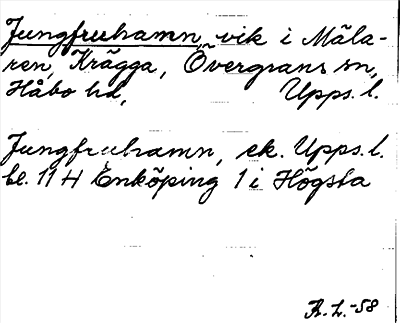 Jungfruhamn, vik i Mäla-
ren, Krägga, Övergrans sn,
Håbo hd, Upps. l.
Jungfruhamn, ek. Upps. l.
bl. 11 H Enköping 1 i Högsta
R. L. -58